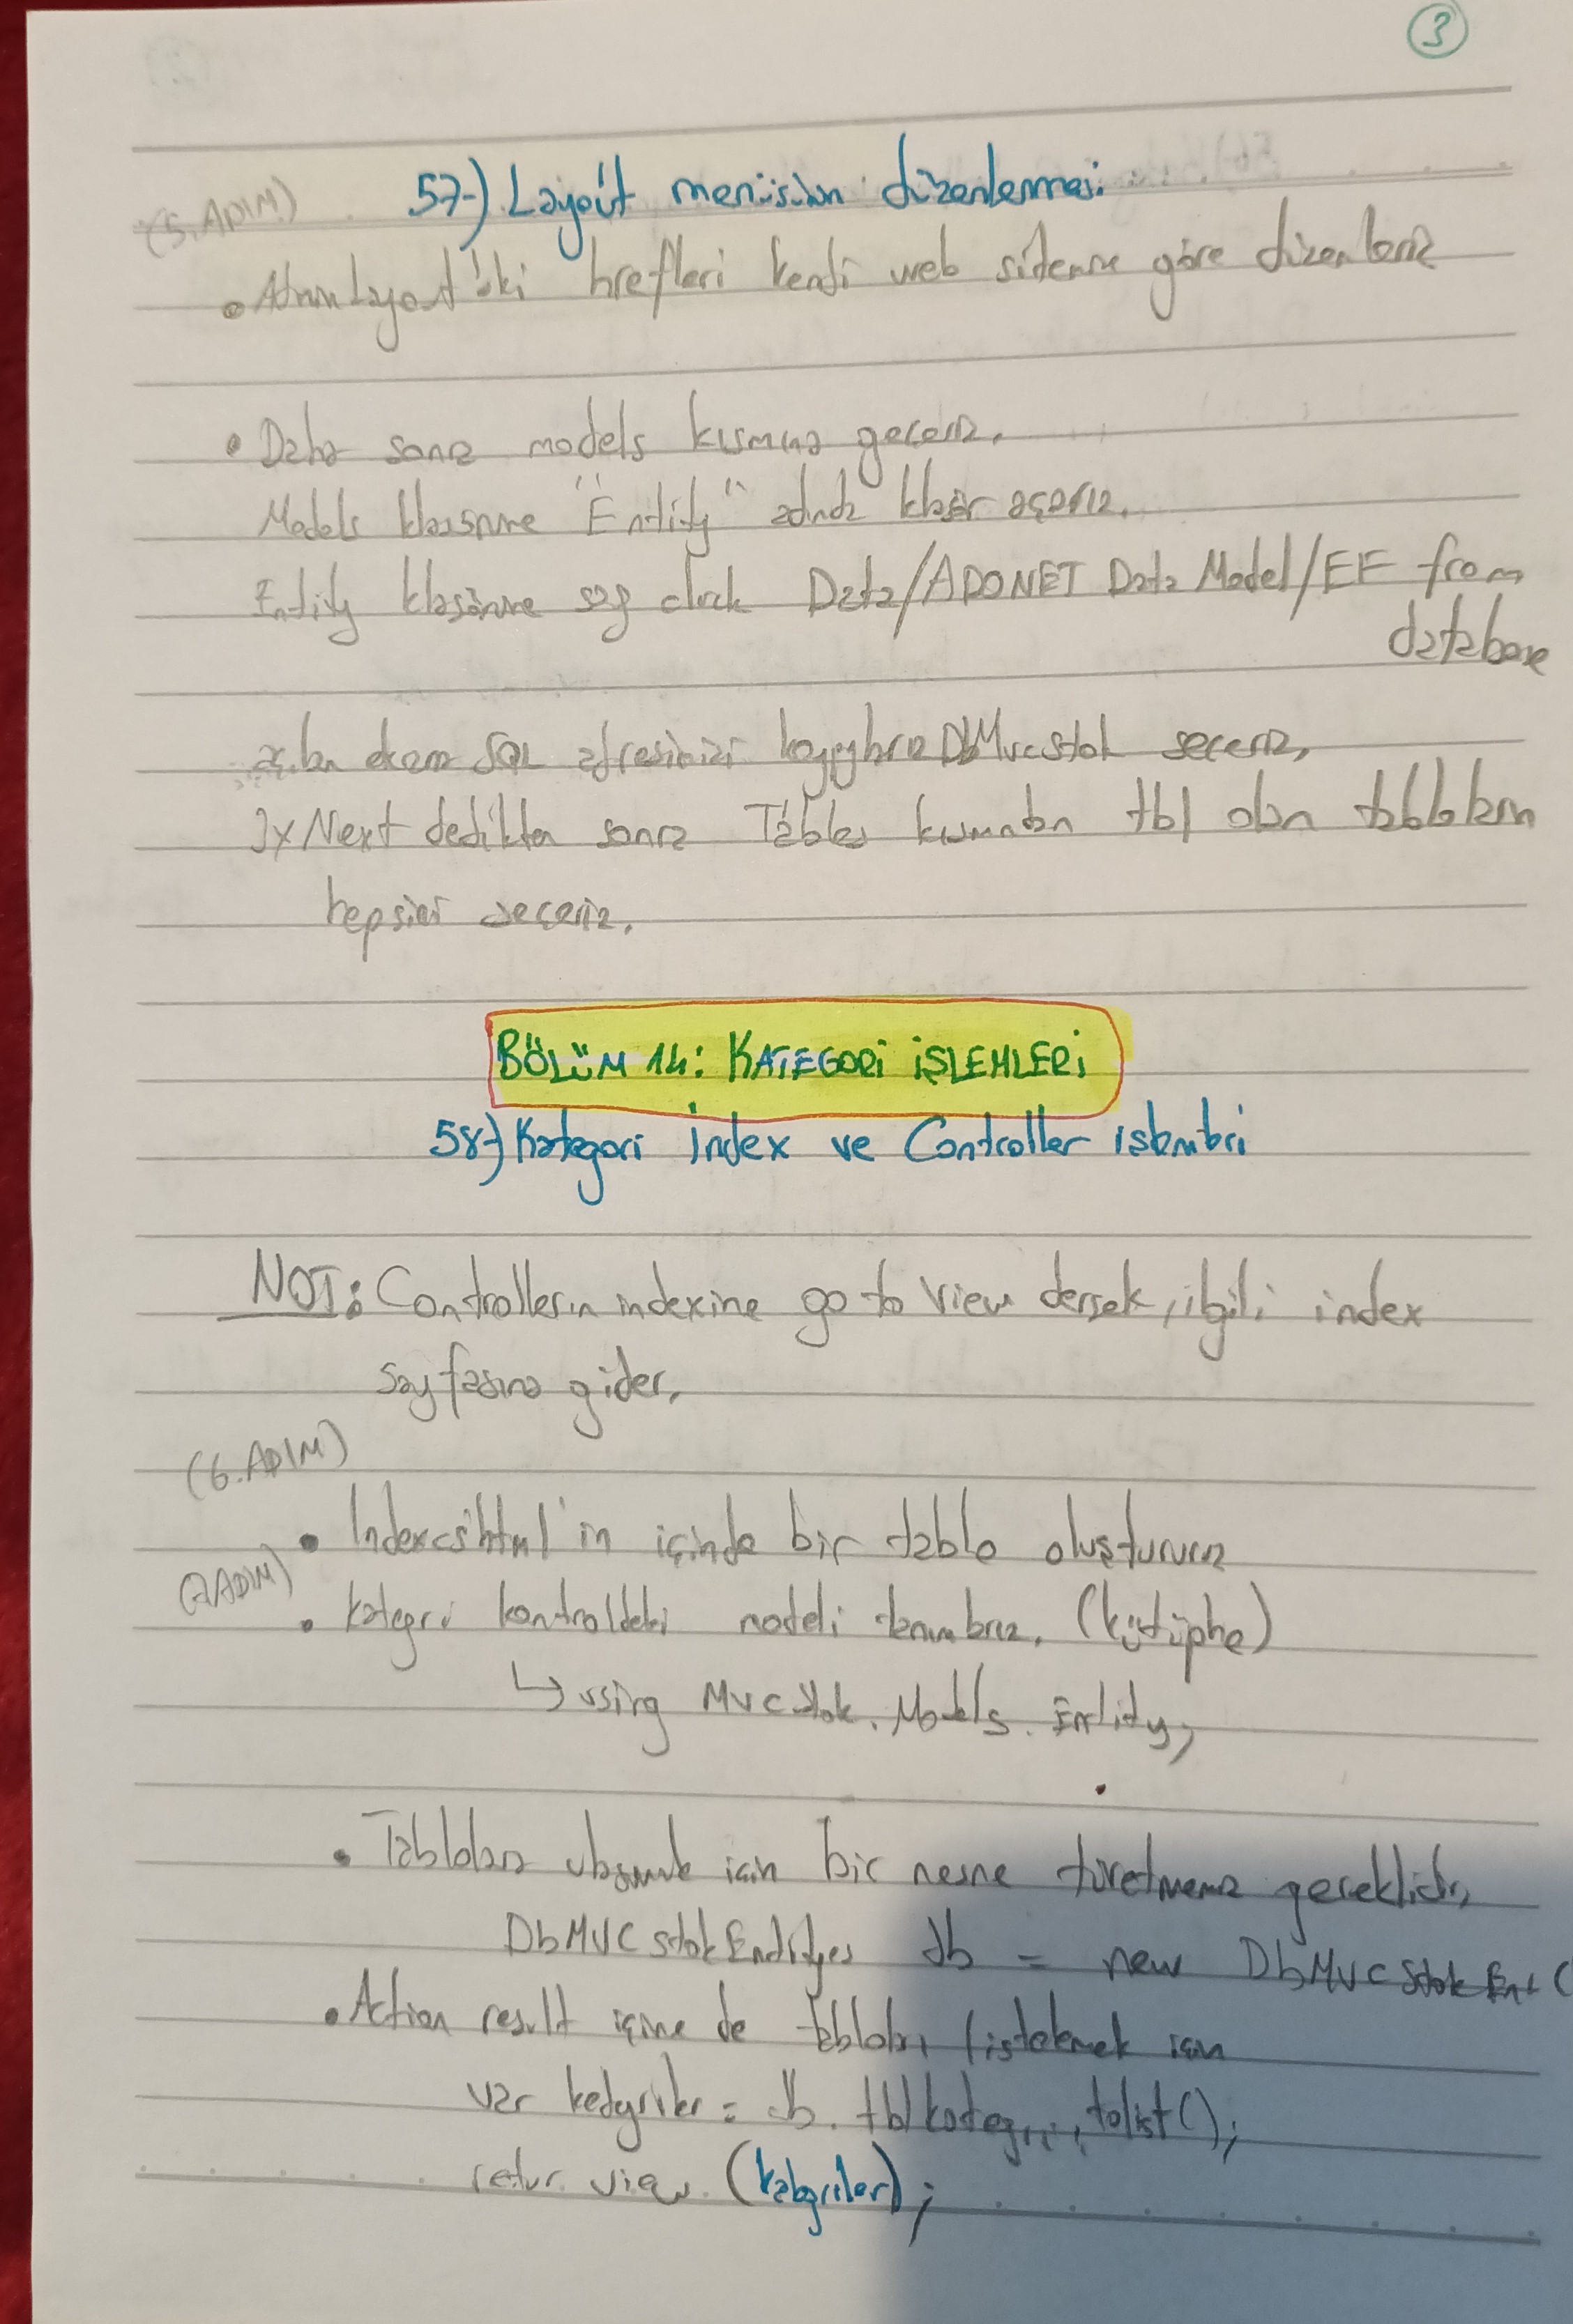 3
57-) Layout menüsünün düzenlenmesi
(5.ADIM)
• AdminLayout'daki hrefleri kendi web sitenine göre düzenleriz
• Daha sonra models kısmına geçeriz.
Models klasörüne "Entity" adında klasör açarız.
Entity klasörüne sağ click Data/ADONET Data Model/EF from
database
açılan ekrana SQL adresimizi kopyalarız DbMvcStok seçeriz,
3x Next dedikten sonra Tables kısmından tbl olan tabloların
hepsini seçeriz.
BÖLÜM 14: KATEGORİ İŞLEMLERİ
58-) Kategori İndex ve Controller işlemleri
NOT: Controllerın indexine go to View dersek, ilgili index
sayfasına gider.
(6.ADIM)
• Indexcshtml'in içinde bir tablo oluştururuz
(7.ADIM)
• Kategori kontroldeki modeli tanımlarız. (kütüphe)
↳ using MvcStok.Models.Entity;
• Tablolara ulaşmak için bir nesne türetmemiz gereklidir,
DbMVCStokEntityes db = new DbMVCStokEnt(
• Action result içine de tabloları listelemek için
var kategoriler = db.tblkategori.tolist();
retur view (kategoriler);